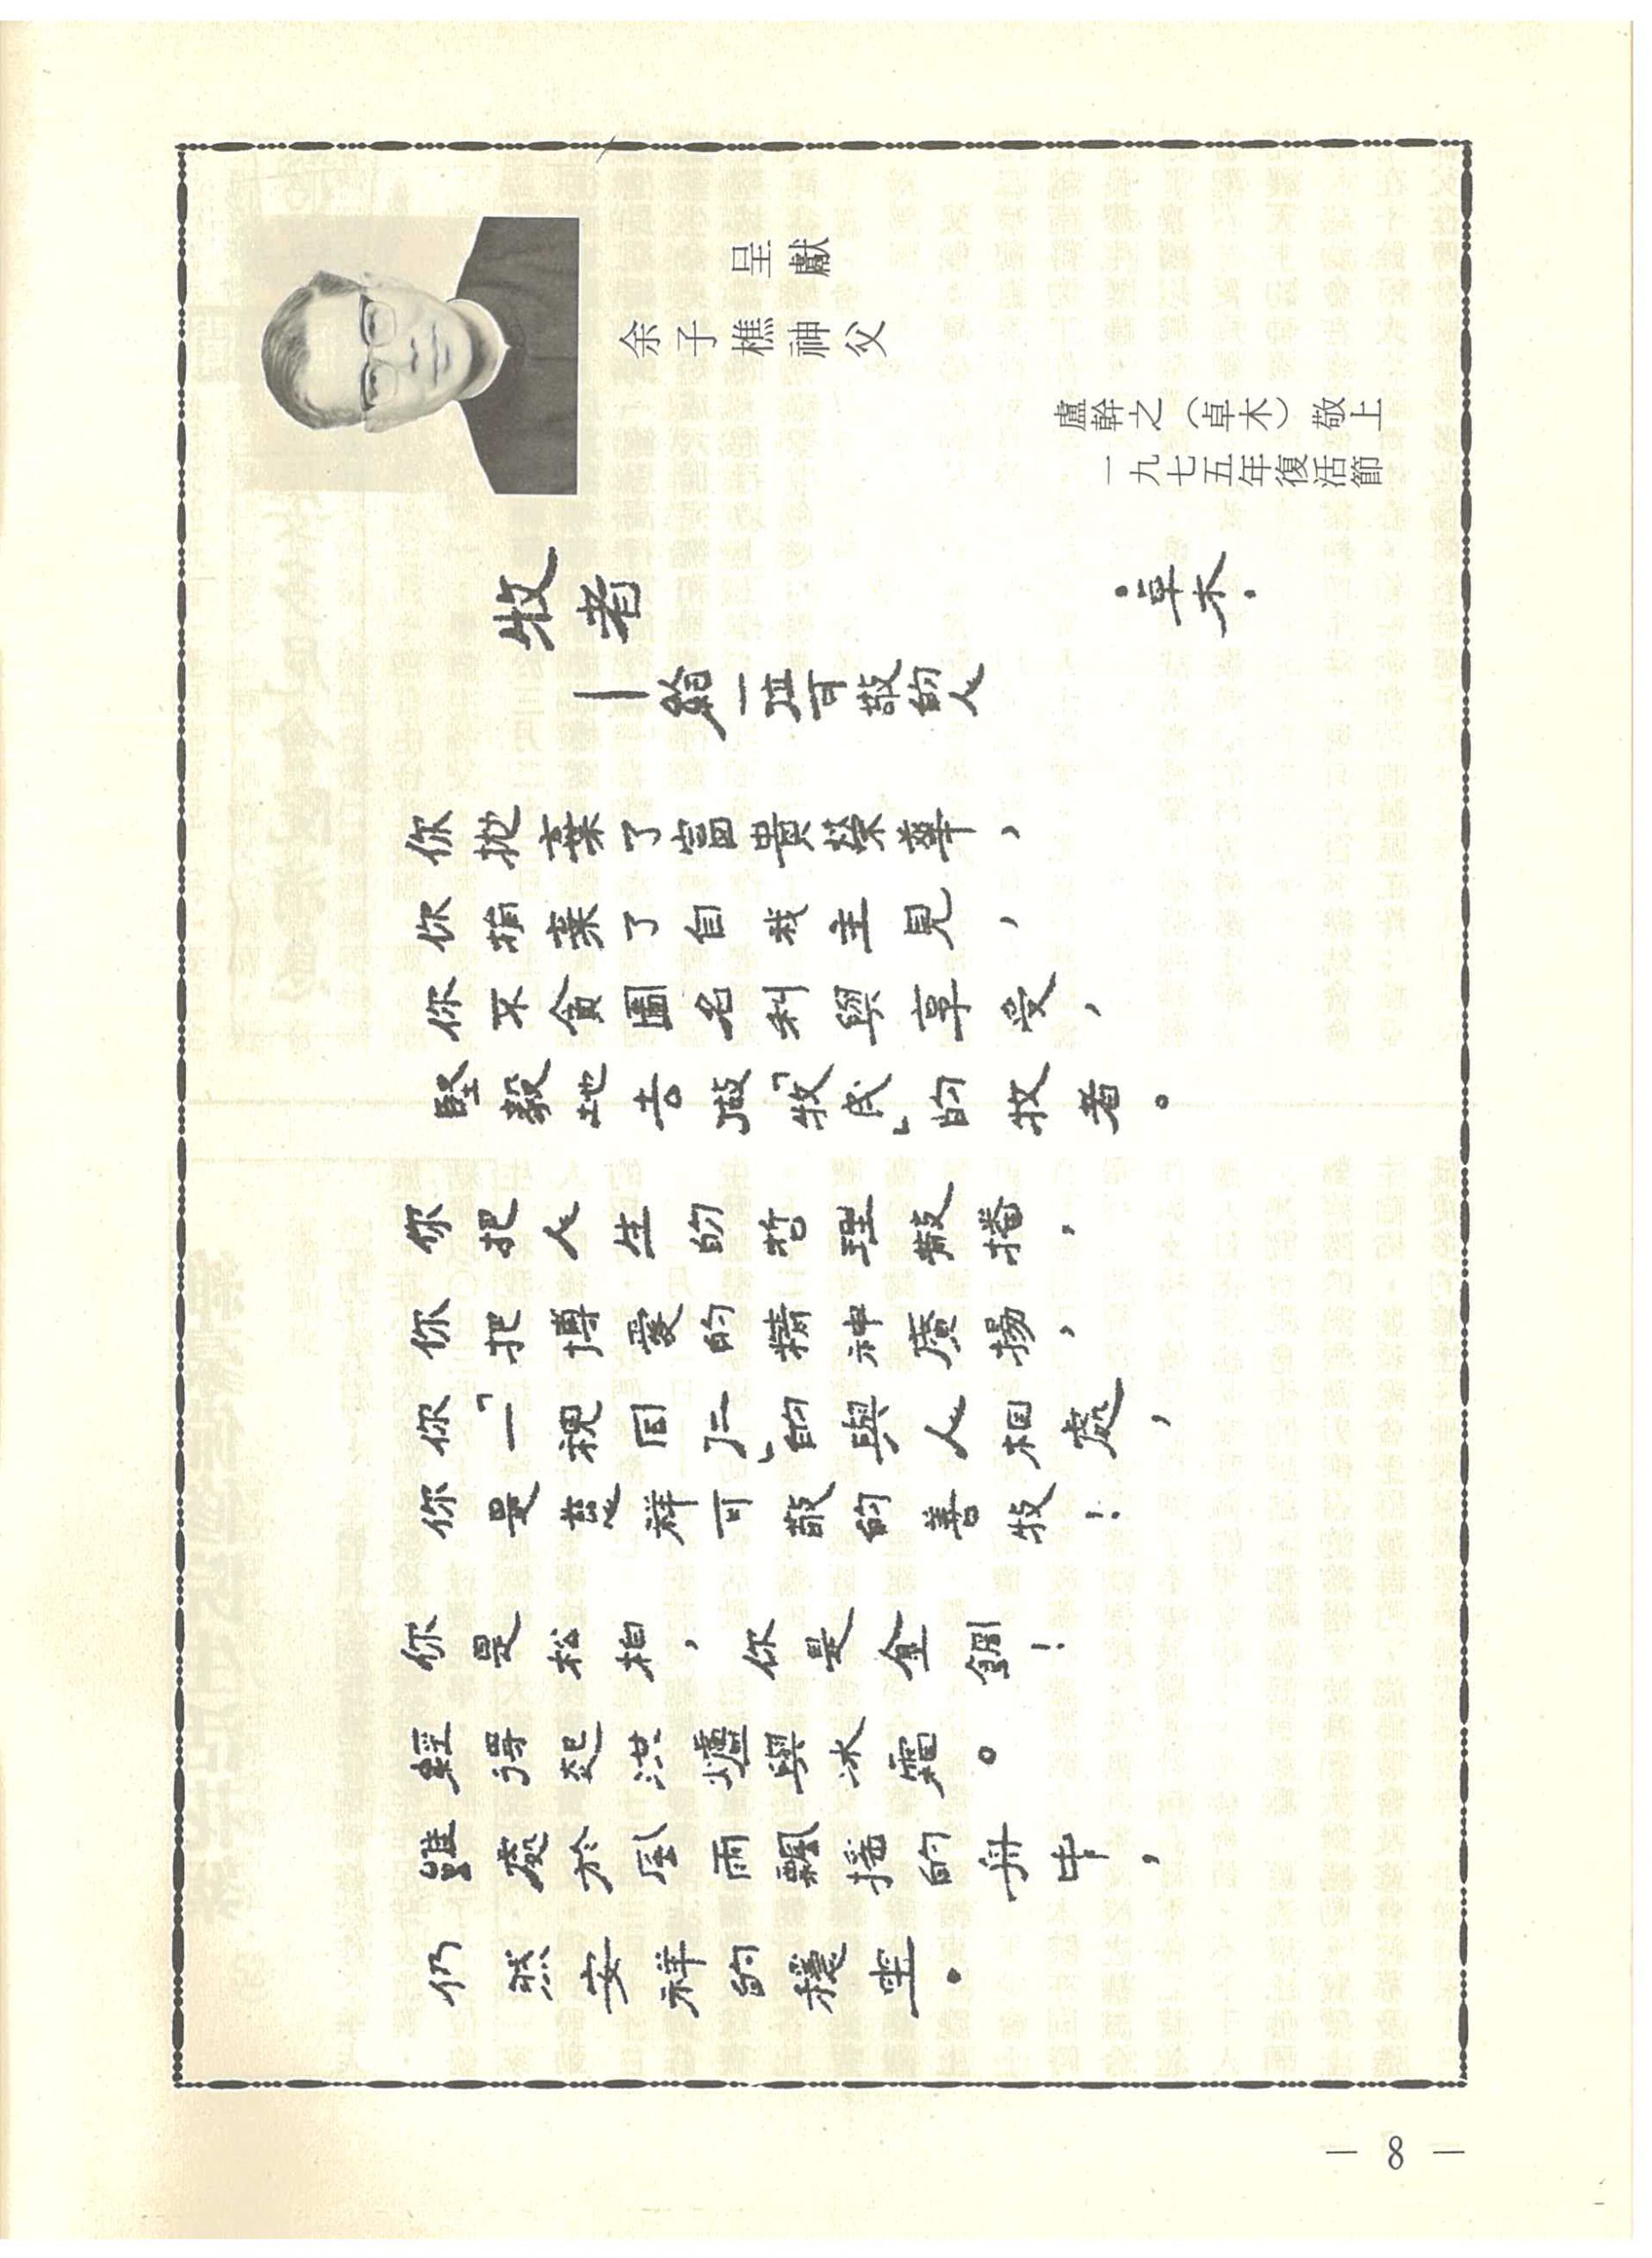 呈獻
余子樵神父
盧幹之（卓木）敬上
一九七五年復活節
牧者
—給一位可敬的人
·卓木·
你拋棄了富貴榮華，
你捐棄了自我主見，
你不貪圖名利與享受，
堅毅地去做「牧民」的牧者。
你把人生的哲理散播，
你把博愛的精神廣揚，
你「一視同仁」的與人相處，
你是慈祥可敬的善牧！
你是松柏，你是金鋼！
經得起洪爐與冰霜。
雖處於風雨飄搖的舟中，
仍然安祥的穩坐。
— 8 —